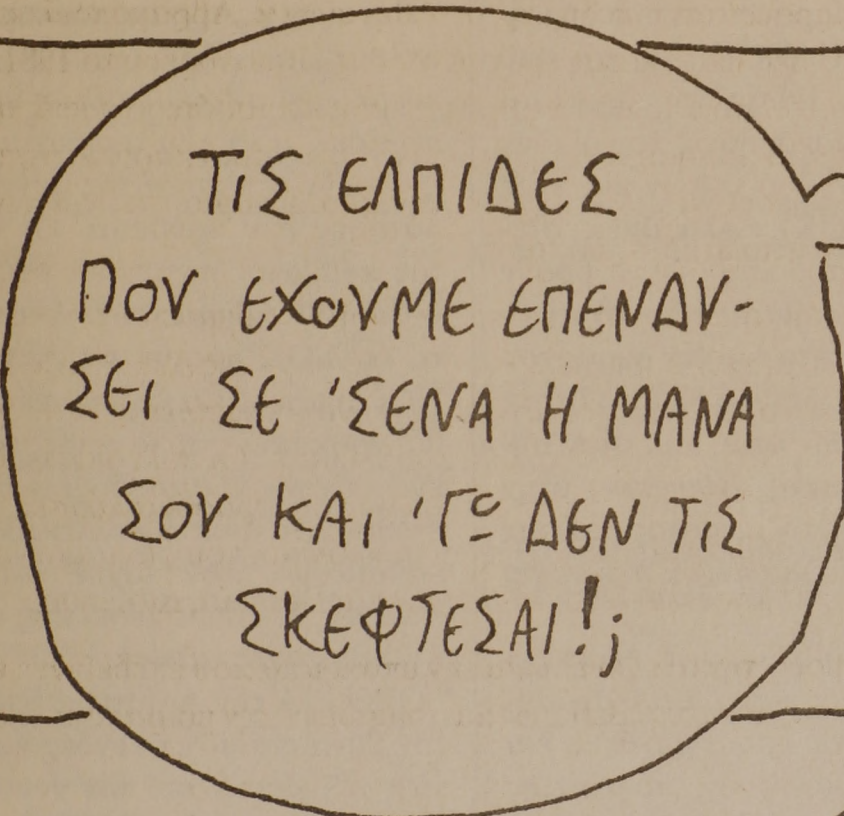 ΤΙΣ ΕΛΠΙΔΕΣ
ΠΟΥ ΕΧΟΥΜΕ ΕΠΕΝΔΥ-
ΣΕΙ ΣΕ 'ΣΕΝΑ Η ΜΑΝΑ
ΣΟΥ ΚΑΙ 'ΓΩ ΔΕΝ ΤΙΣ
ΣΚΕΦΤΕΣΑΙ!;